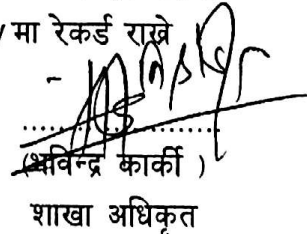 मा रेकर्ड राखे
....................
(भविन्द्र कार्की )
शाखा अधिकृत